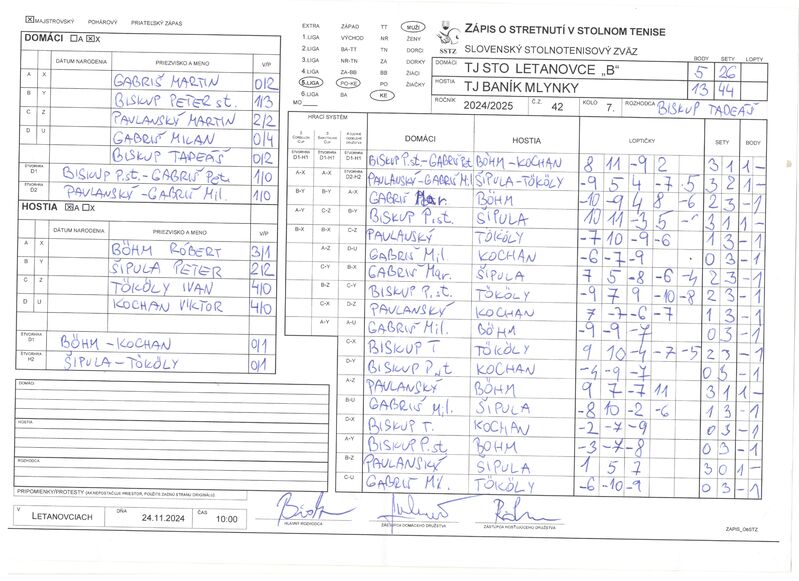 ☒ MAJSTROVSKÝ POHÁROVÝ PRIATEĽSKÝ ZÁPAS
DOMÁCI ☐A ☒X
DÁTUM NARODENIA PRIEZVISKO A MENO V/P
A X GABRIŠ MARTIN 0/2
B Y BISKUP PETER st. 1/3
C Z PAVLANSKÝ MARTIN 2/2
D U GABRIŠ MILAN 0/4
BISKUP TADEÁŠ 0/2
ŠTVORHRA D1 BISKUP P.st.-GABRIŠ Pst. 1/0
ŠTVORHRA D2 PAVLANSKÝ-GABRIŠ Mil. 1/0
HOSTIA ☒A ☐X
DÁTUM NARODENIA PRIEZVISKO A MENO V/P
A X BÖHM RÓBERT 3/1
B Y ŠIPULA PETER 2/2
C Z TÖKÖLY IVAN 4/0
D U KOCHAN VIKTOR 4/0
ŠTVORHRA D1 BÖHM-KOCHAN 0/1
ŠTVORHRA H2 ŠIPULA-TÖKÖLY 0/1
DOMÁCI
HOSTIA
ROZHODCA
PRIPOMIENKY/PROTESTY (AK NEPOSTAČUJE PRIESTOR, POUŽITE ZADNÚ STRANU ORIGINÁLU)
V LETANOVCIACH DŇA 24.11.2024 ČAS 10:00
EXTRA ZÁPAD TT MUŽI
1. LIGA VÝCHOD NR ŽENY
2. LIGA BA-TT TN DORCI
3. LIGA NR-TN ZA DORKY
4. LIGA ZA-BB BB ŽIACI
5. LIGA PO-KE PO ŽIAČKY
6. LIGA BA KE
MO
SSTZ
ZÁPIS O STRETNUTÍ V STOLNOM TENISE
SLOVENSKÝ STOLNOTENISOVÝ ZVÄZ
BODY SETY LOPTY
DOMÁCI TJ STO LETANOVCE „B" 5 26
HOSTIA TJ BANÍK MLYNKY 13 44
ROČNÍK 2024/2025 Č.Z. 42 KOLO 7. ROZHODCA BISKUP TADEÁŠ
HRACÍ SYSTÉM
DOMÁCI HOSTIA LOPTIČKY SETY BODY
D1-H1 D1-H1 D1-H1 BISKUP P.st-GABRIŠ Pst BÖHM-KOCHAN 8 11 -9 2 3 1 1 -
A-X A-X D2-H2 PAVLANSKÝ-GABRIŠ Mil ŠIPULA-TÖKÖLY -9 5 4 -7 5 3 2 1 -
B-Y B-Y A-X GABRIŠ Mar. BÖHM -10 -9 4 8 -6 2 3 -1
A-Y C-Z B-Y BISKUP P.st. ŠIPULA 10 11 -3 5 3 1 1 -
B-X B-X C-Z PAVLANSKÝ TÖKÖLY -7 10 -9 -6 1 3 -1
A-Z D-U GABRIŠ Mil. KOCHAN -6 -7 -9 0 3 -1
C-Y B-X GABRIŠ Mar. ŠIPULA 7 5 -8 -6 -4 2 3 -1
B-Z C-Y BISKUP P.st. TÖKÖLY -9 7 9 -10 -8 2 3 -1
C-X D-Z PAVLANSKÝ KOCHAN 7 -7 -6 -7 1 3 -1
A-Y A-U GABRIŠ Mil. BÖHM -9 -9 -7 0 3 -1
C-X BISKUP T TÖKÖLY 9 10 -4 -7 -5 2 3 -1
D-Y BISKUP P.st KOCHAN -4 -9 -7 0 3 -1
A-Z PAVLANSKÝ BÖHM 9 7 -7 11 3 1 1 -
B-U GABRIŠ Mil. ŠIPULA -8 10 -2 -6 1 3 -1
D-X BISKUP T. KOCHAN -2 -7 -9 0 3 -1
A-Y BISKUP P.st BÖHM -3 -7 -8 0 3 -1
B-Z PAVLANSKÝ ŠIPULA 1 5 7 3 0 1 -
C-U GABRIŠ Mil. TÖKÖLY -6 -10 -9 0 3 -1
HLAVNÝ ROZHODCA ZÁSTUPCA DOMÁCEHO DRUŽSTVA ZÁSTUPCA HOSŤUJÚCEHO DRUŽSTVA
ZÁPIS_OsSTZ